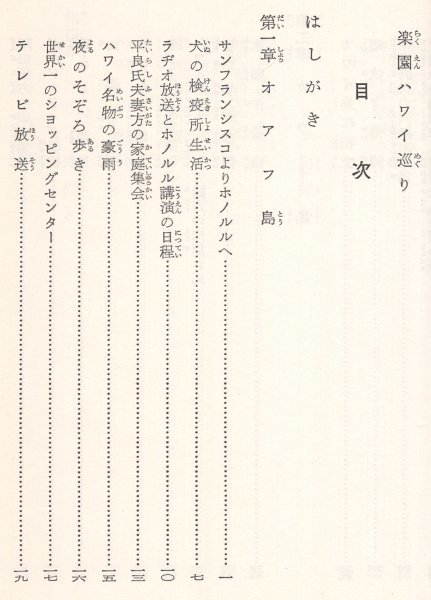 楽園ハワイ巡り
目次
はしがき
第一章 オアフ島
サンフランシスコよりホノルルへ……一
犬の検疫所生活……七
ラヂオ放送とホノルル講演の日程……一〇
平良氏夫妻方の家庭集会……一三
ハワイ名物の豪雨……一五
夜のそぞろ歩き……一六
世界一のショッピングセンター……一七
テレビ放送……一九